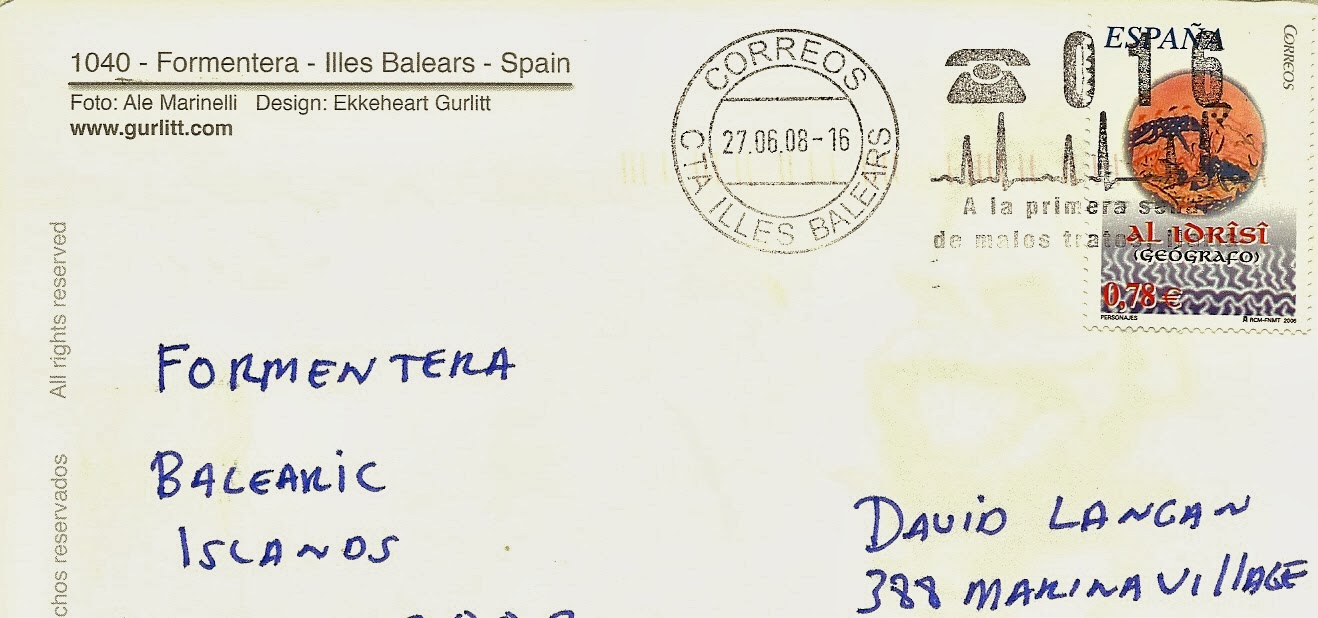 1040 - Formentera - Illes Balears - Spain
Foto: Ale Marinelli Design: Ekkeheart Gurlitt
www.gurlitt.com
All rights reserved
chos reservados
CORREOS
27.06.08-16
CTA ILLES BALEARS
016
A la primera señal
de malos tratos
ESPAÑA
CORREOS
AL IDRÎSÎ
(GEÓGRAFO)
0,78 €
PERSONAJES
RCM-FNMT 2006
FORMENTERA
BALEARIC
ISLANDS
DAVID LANGAN
388 MARINA VillAGE